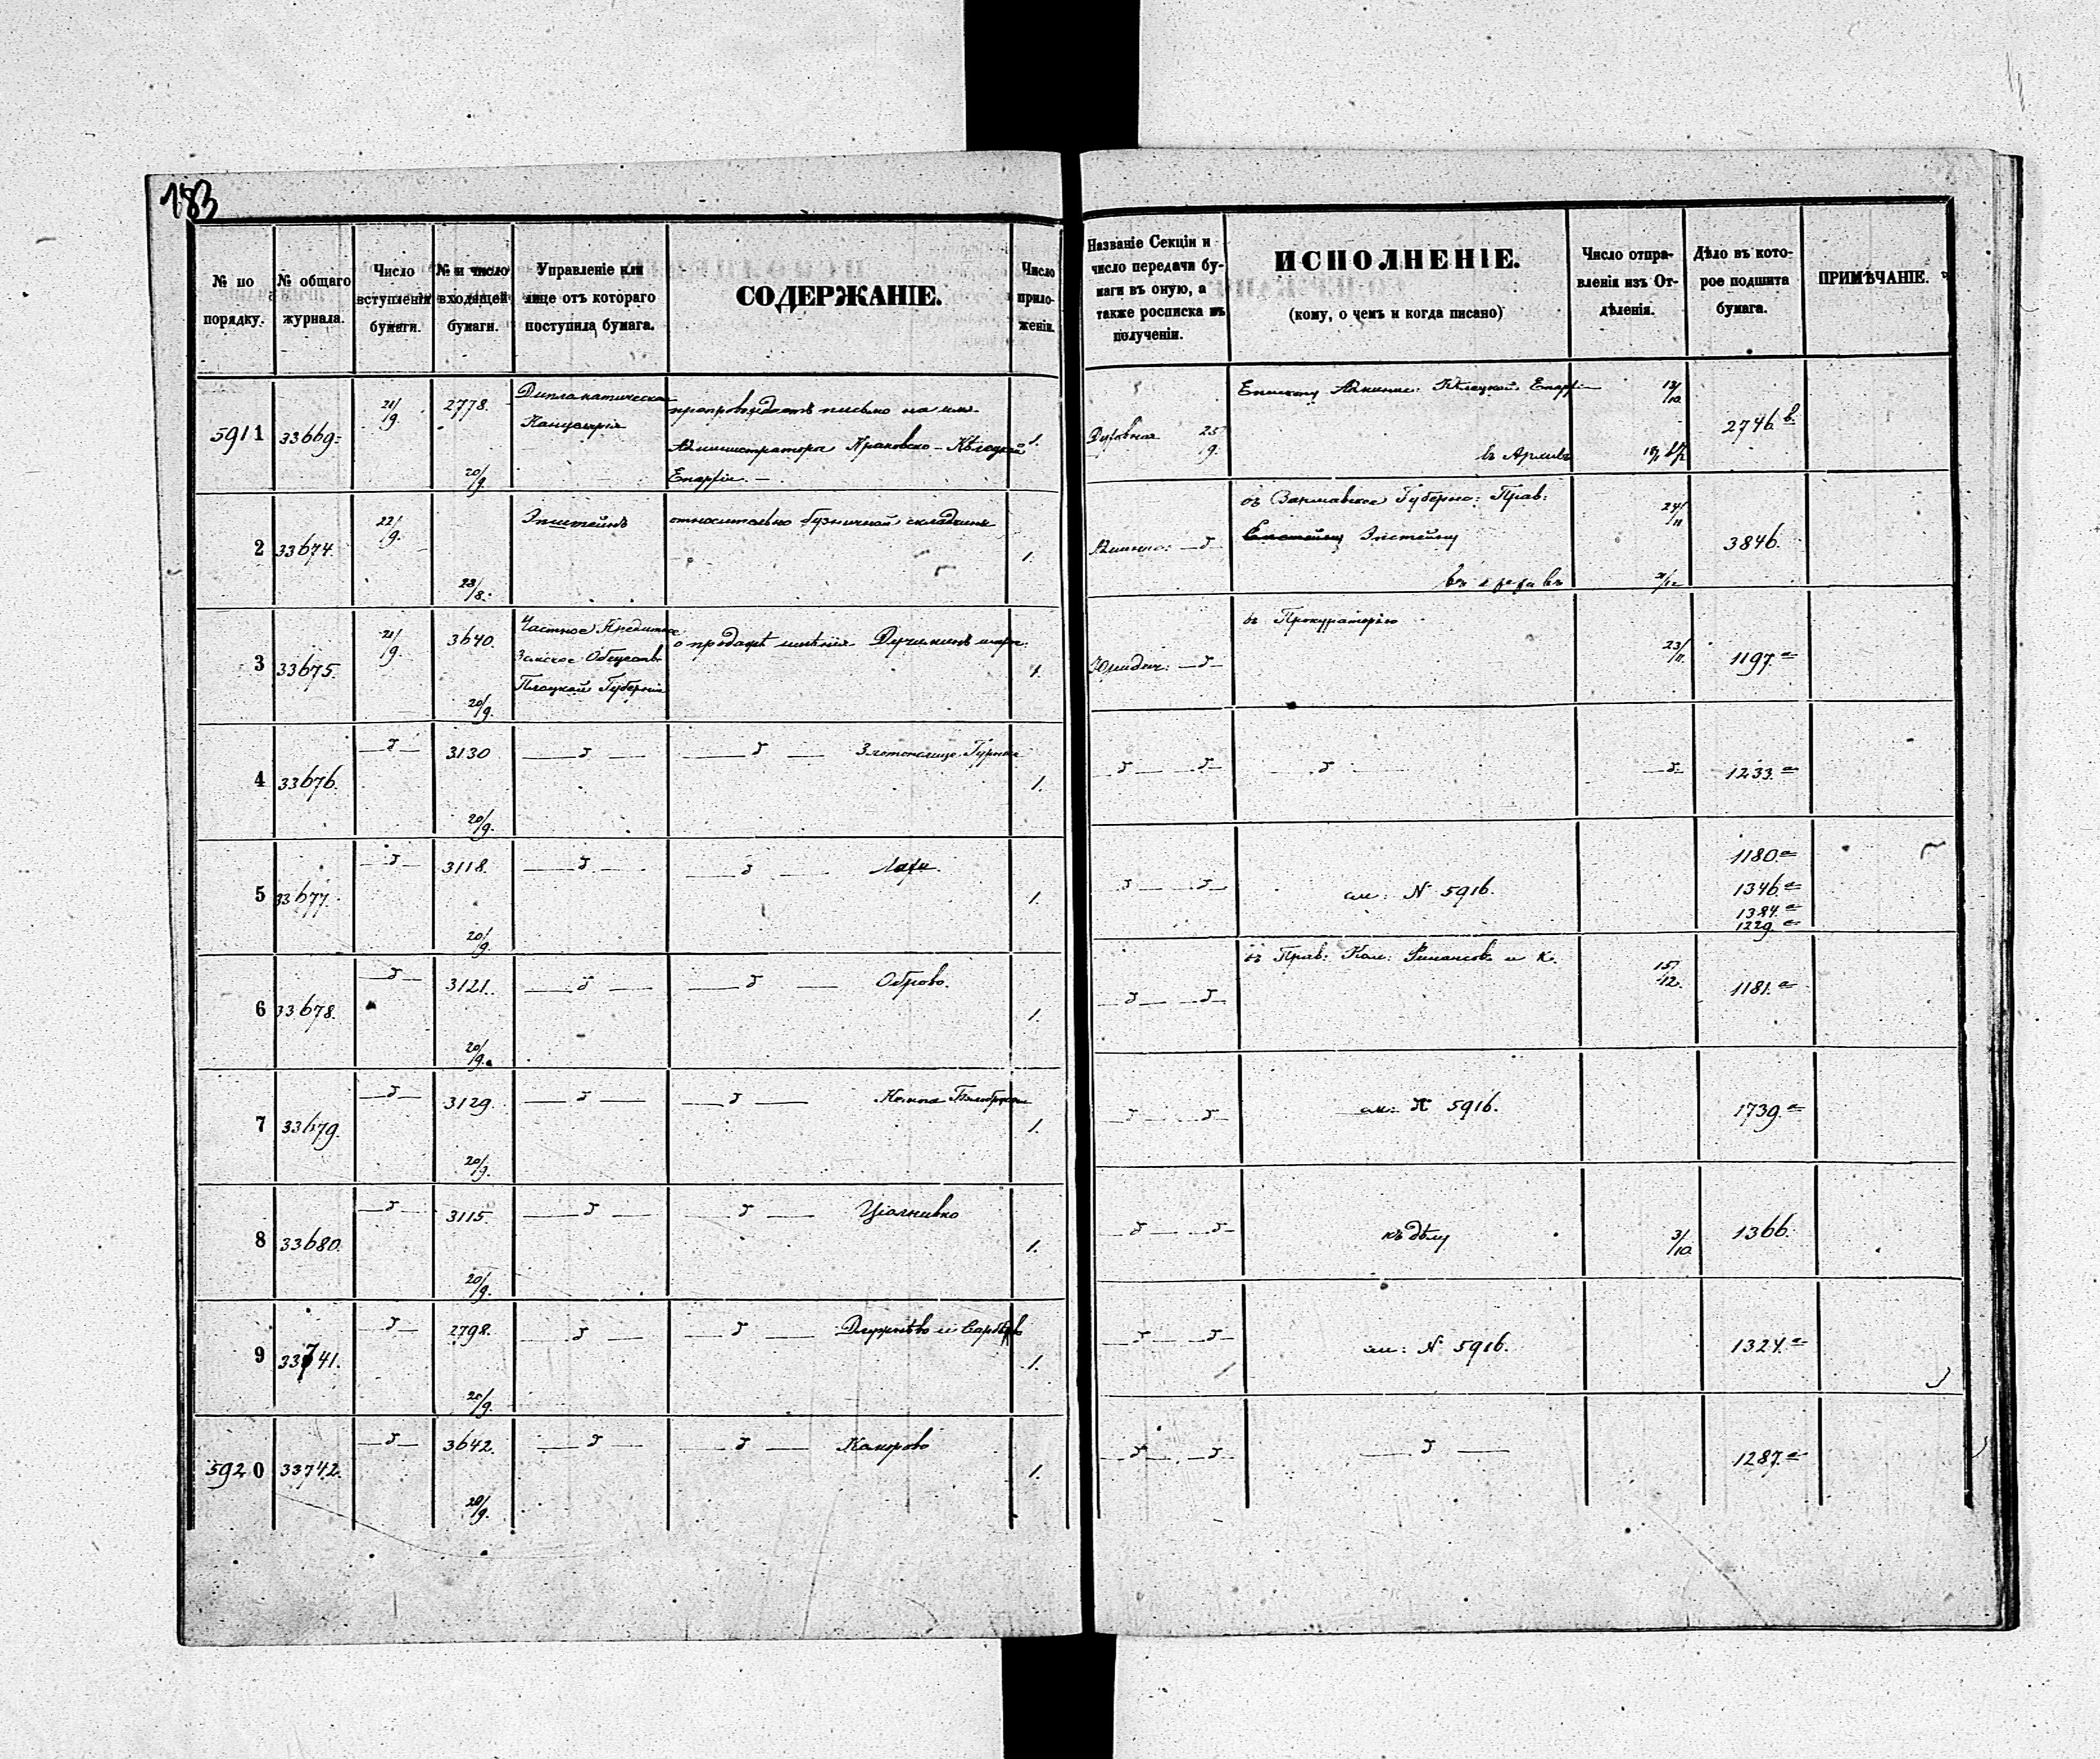 183
№ по порядку.
№ общаго журнала.
Число вступленія бумаги.
№ и число входящей бумаги.
Управленіе или лице отъ котораго поступила бумага.
СОДЕРЖАНІЕ.
Число приложеній.
Названіе Секціи и число передачи бумаги въ оную, а также росписка въ полученіи.
ИСПОЛНЕНІЕ.
(кому, о чемъ и когда писано)
Число отправленія изъ Отдѣленія.
Дѣло въ которое подшита бумага.
ПРИМѢЧАНІЕ.
5911 33669. 21/9. 2778. 20/9. Дипломатическая
Канцелярія
препровождаетъ письмо на имя
Администратора Краковско-Кѣлецкой
Епархіи. 1.
Духовная 25/9.
Епископу Админис: Кѣлецкой Епархіи 13/10.
въ Архивъ
2746 в.
2 33674. 22/9. 23/8. Эпштейнъ
относительно складчины 1.
Админис: — ъ
въ Варшавское Губерно: Прав: 24/11
Эпстейну
въ архивъ 21/12
3846.
3 33675. 21/9. 3640. 20/9. Частное Кредитное
Земское Общество
Плоцкой Губерніи
о продажѣ имѣнія 1.
Юридич: — ъ —
въ Прокураторію 23/11. 1197. а
4 33676. — ъ — 3130 20/9. — ъ — — ъ — Злотополице Гурное 1.
— ъ — — ъ — — ъ — — ъ 1233. а
5 33677. — ъ — 3118. 20/9. — ъ — — ъ — Лахи. 1.
— ъ — — ъ — см: № 5916. 1180. а
1346. а
1384. а
1229. а
6 33678. — ъ — 3121. 20/9. — ъ — — ъ — Оброво. 1.
— ъ — — ъ — въ Прав: Ком: Финансовъ и К. 15/12. 1181. а
7 33679. — ъ — 3129. 20/9. — ъ — — ъ — Кемпа 1.
— ъ — — ъ — см: № 5916. 1739. а
8 33680. — ъ — 3115. 20/9. — ъ — — ъ — 1.
— ъ — — ъ — къ дѣлу 3/10. 1366.
9 33741. — ъ — 2798. 20/9. — ъ — — ъ — 1.
— ъ — — ъ — см: № 5916. 1324. а
5920 33742. — ъ — 3642. 20/9. — ъ — — ъ — 1.
— ъ — — ъ — — ъ — 1287. а